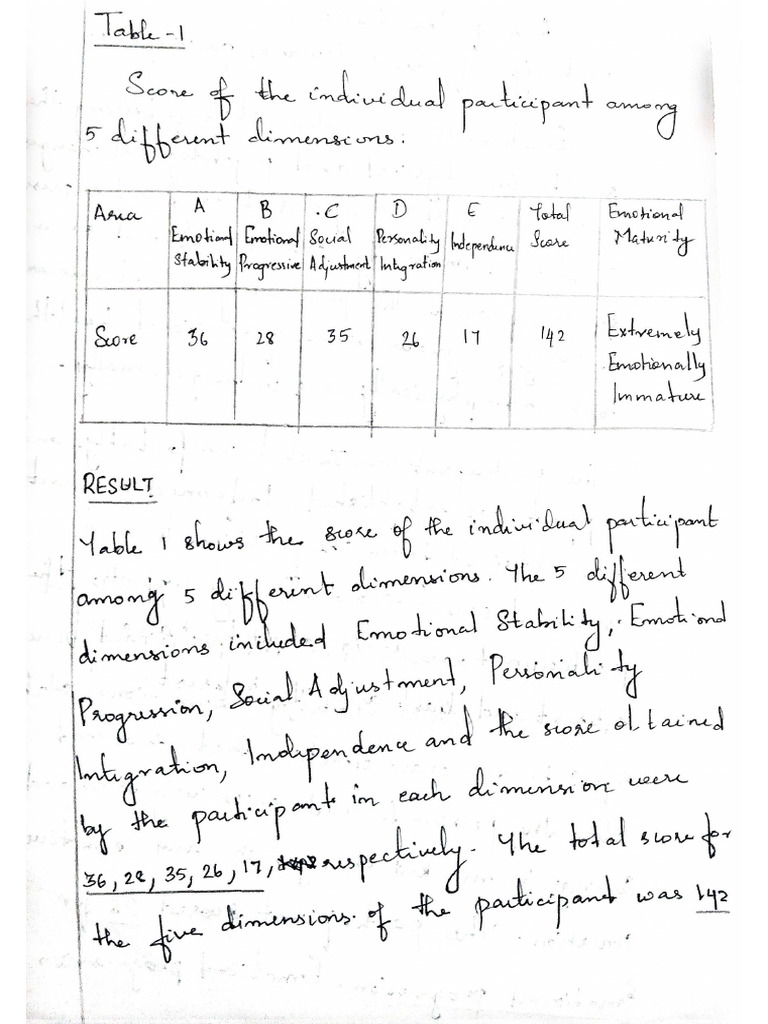 Table-1
Score of the individual participant among
5 different dimensions.
Area A Emotional Stability B Emotional Progressive C Social Adjustment D Personality Intigration E Independence Total Score Emotional Maturity
Score 36 28 35 26 17 142 Extremely Emotionally Immature
RESULT
Table 1 shows the score of the individual participant
among 5 different dimensions. The 5 different
dimensions included Emotional Stability, Emotional
Progression, Social Adjustment, Personality
Intigration, Independence and the score obtained
by the participant in each dimension were
36, 28, 35, 26, 17, respectively. The total score for
the five dimensions of the participant was 142